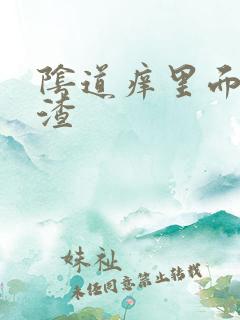 陰道痒里而
渣
妹祉
未经同意禁止转载